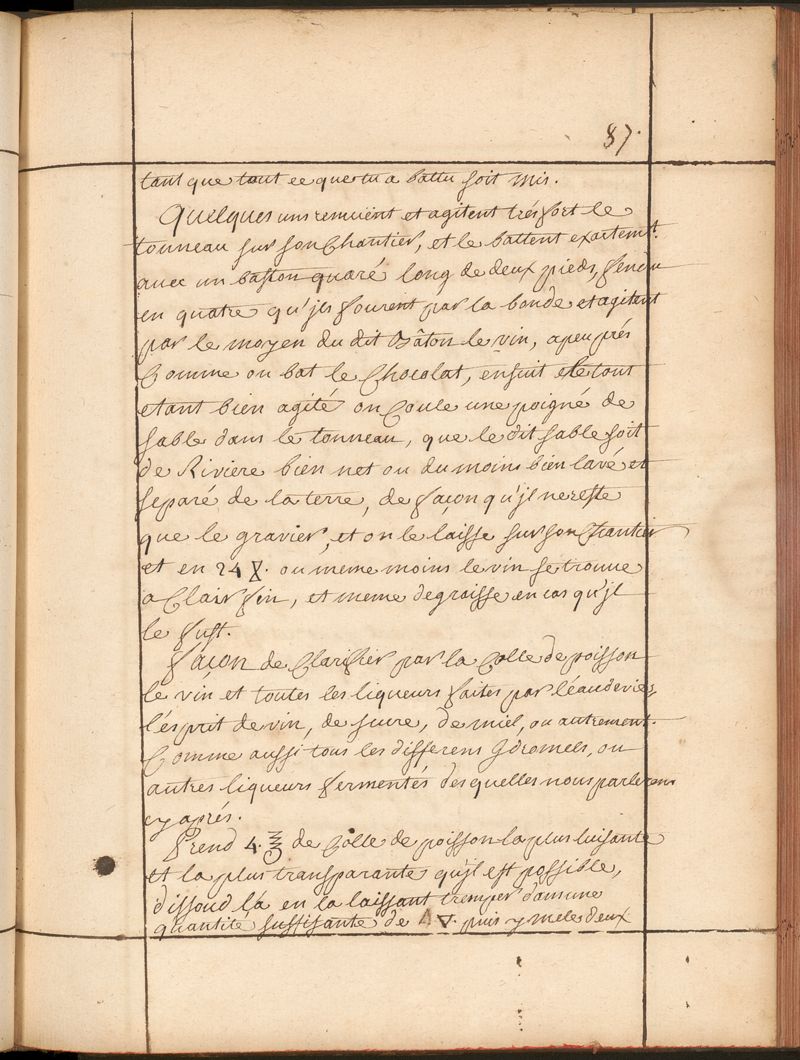 87.
tant que tout ce que tu a battu soit mis.
Quelques uns remuënt et agitent trés fort le
tonneau sur son Chantier, et le battent exactemt.
avec un baston quaré long de deux pieds, fendu
en quatre qu'jls fourent par la bonde et agitent
par le moyen du dit Bâton le vin, apeu prés
Comme on bat le Chocolat, ensuit ete le tout
etant bien agité on Coule une poigné de
sable dans le tonneau, que le dit sable soit
de Riviere bien net ou du moins bien lavé et
separé de la terre, de façon qu'jl ne reste
que le gravier, et on le laisse sur son Chantier
et en 24 X. ou meme moins le vin se trouve
a Clair fin, et meme degraissé en cas qu'jl
le fust.
façon de Clarifier par la Colle de poisson
le vin et toutes les liqueurs faites par l'éaudevie,
l'ésprit de vin, de sucre, de miel, ou autrement.
Comme aussi tous les differens Ydromels, ou
autres liqueurs fermentés desquelles nous parlerons
cy aprés.
Prend 4. de Colle de poisson la plus luisante
et la plus transparante qu'jl est possible,
dissoud là en la laissant tremper dans une
quantité suffisante de ▽. puis y mele deux